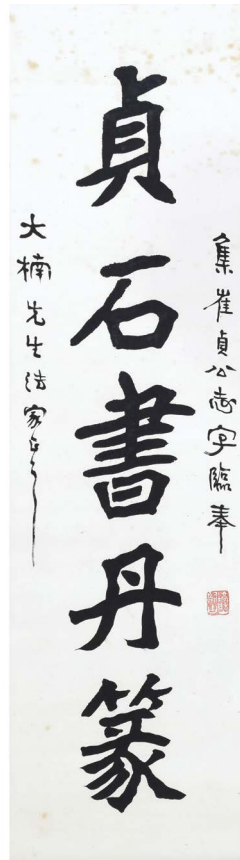 集崔貞公志字臨奉
貞石書丹篆
大楠先生法家正之